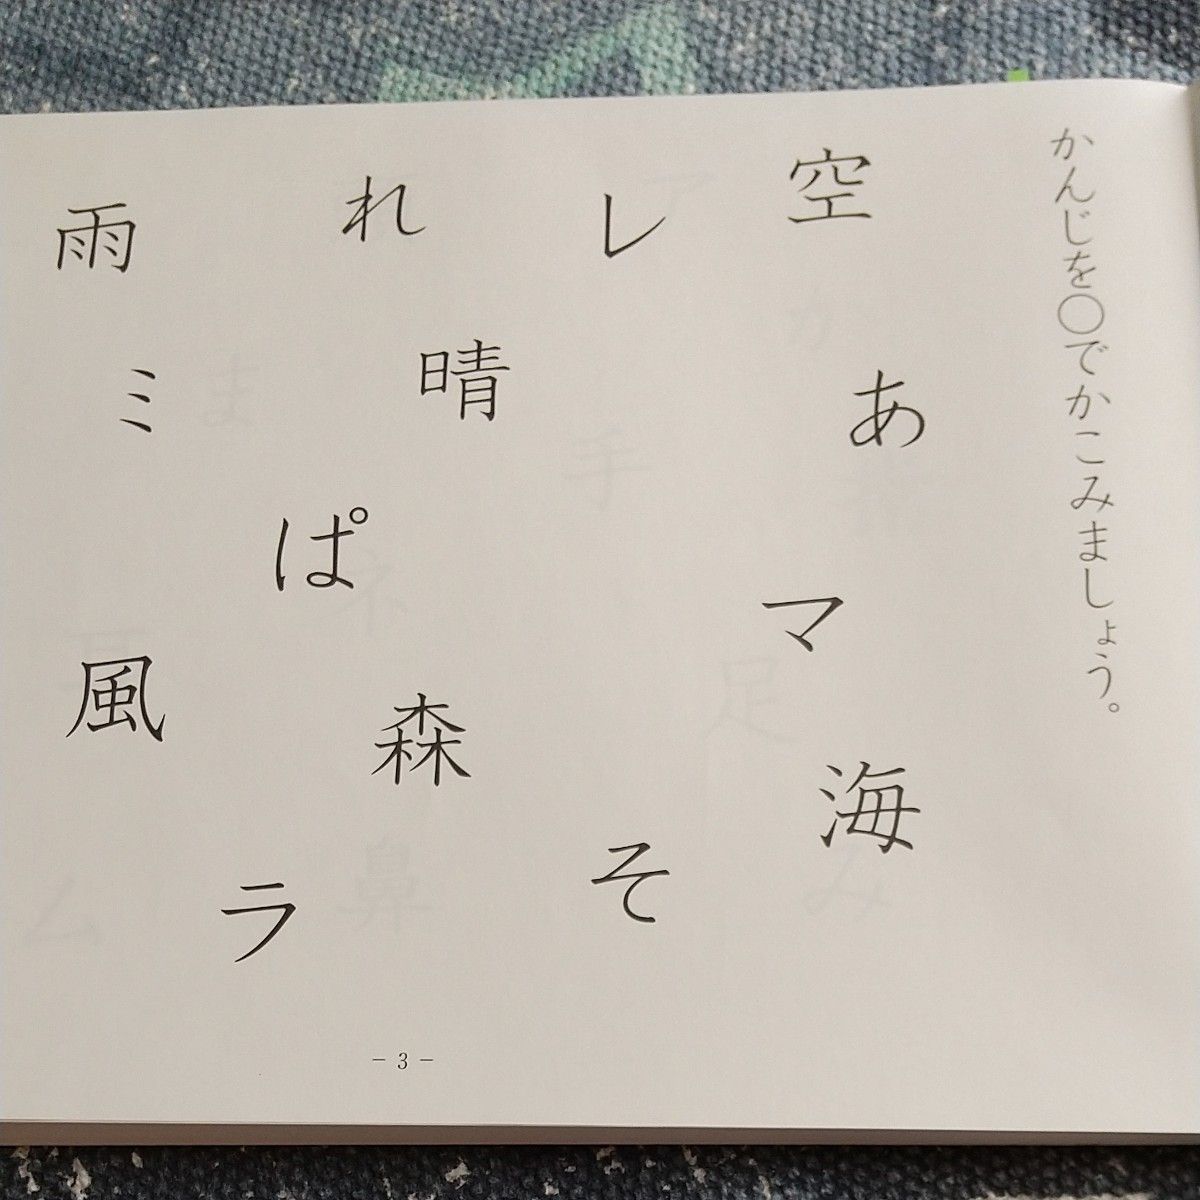 かんじを〇でかこみましょう。
空
レ
れ
雨
あ
晴
ミ
ぱ
マ
風
森
海
そ
ラ
- 3 -